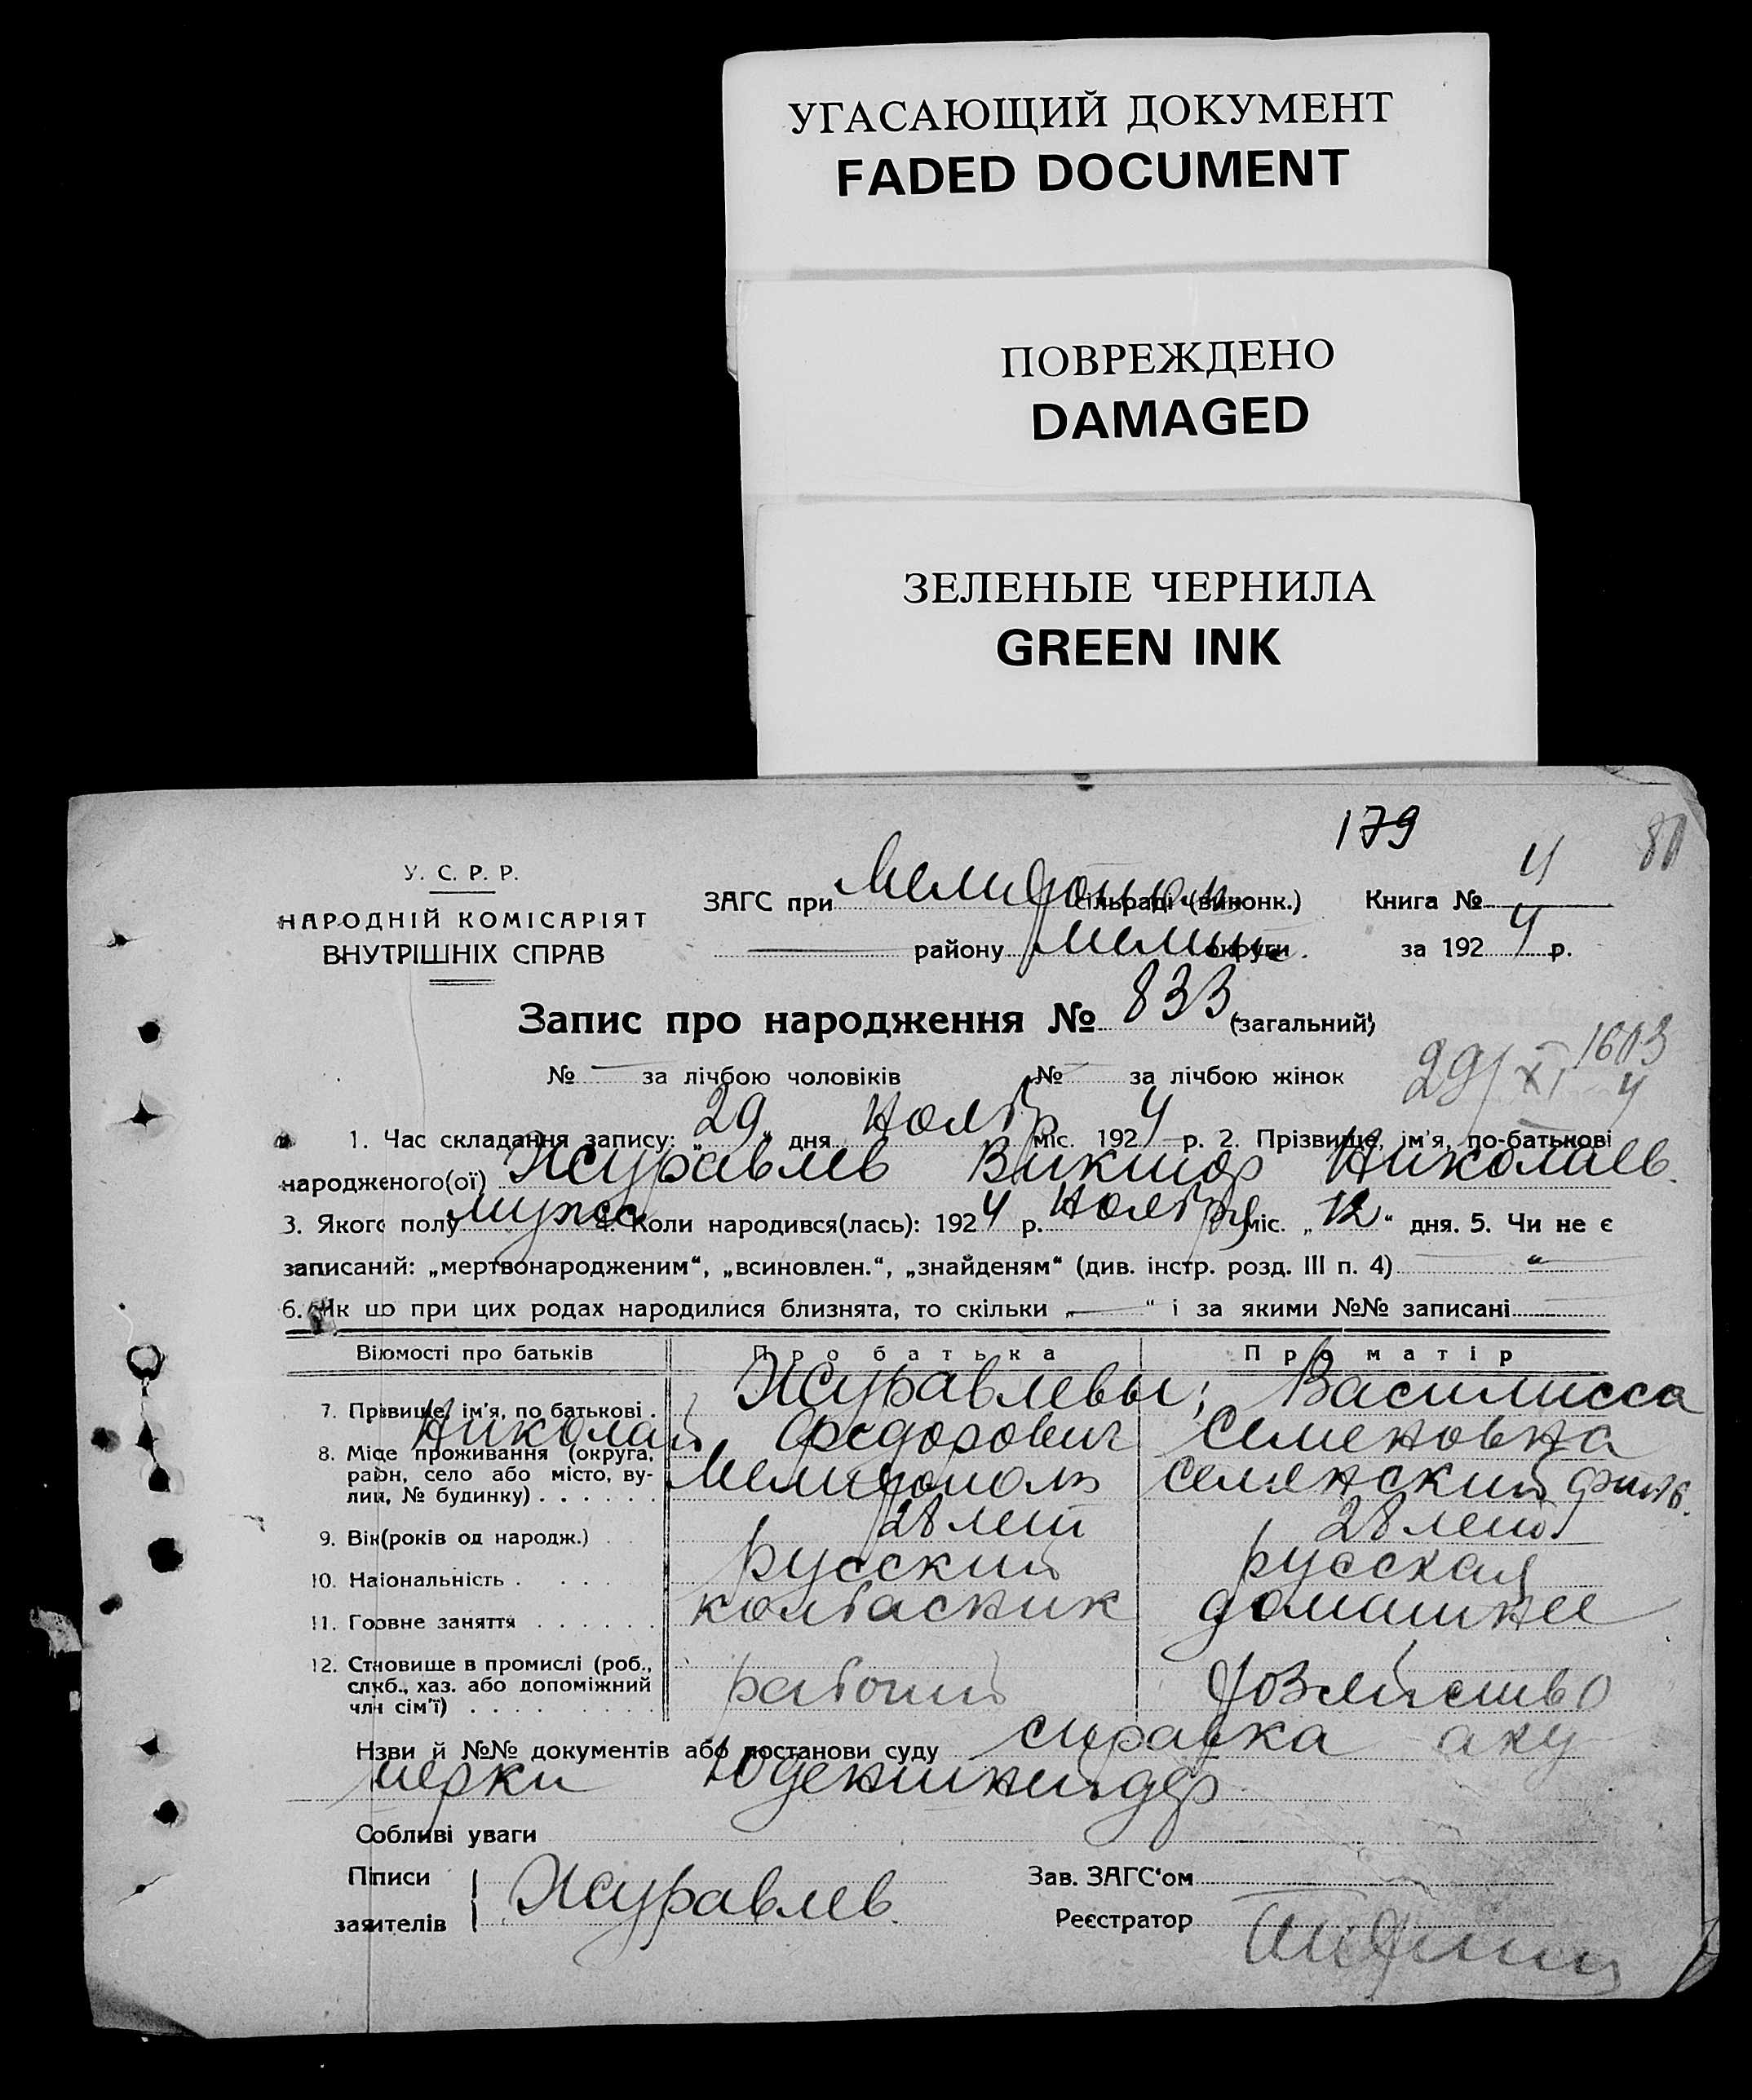 УГАСАЮЩИЙ ДОКУМЕНТ
FADED DOCUMENT
ПОВРЕЖДЕНО
DAMAGED
ЗЕЛЕНЫЕ ЧЕРНИЛА
GREEN INK
179 80
У. С. Р. Р.
НАРОДНІЙ КОМІСАРІЯТ
ВНУТРІШНІХ СПРАВ
ЗАГС при Мелитополь сільраді (виконк.) Книга № 4
району Мелит. округи за 1924 р.
Запис про народження № 833 (загальний)
№ — за лічбою чоловіків № — за лічбою жінок 29/XI 1603 4
1. Час складання запису: „29„ дня Ноябр міс. 1924 р. 2. Прізвище, ім'я, по-батькові
народженого(ої) Журавлев Виктор Николаев.
3. Якого полу мужс 4. Коли народився(лась): 1924 р. Ноября міс. „12“ дня. 5. Чи не є
записаний: „мертвонародженим“, „всиновлен.“, „знайденям“ (див. інстр. розд. III п. 4) — “
6. Як що при цих родах народилися близнята, то скільки „—“ і за якими №№ записані
Відомості про батьків Про батька Про матір
7. Прізвище, ім'я, по батькові . Журавлевы; Василисса
Николай Федорович Семеновна
8. Місце проживання (округа, район, село або місто, вулиц, № будинку) . . . . . . Мелитополь
9. Вік (років од народж.) . . 28 лет 28 лет
10. Національність . . . . русский русская
11. Головне заняття . . . . . . колбасник домашнее
12. Становище в промислі (роб., служб., хаз. або допоміжний член сім'ї) . . . . рабочий хозяйство
Назви й №№ документів або постанови суду справка аку
шерки
Собливі уваги
Підписи
заявителів Журавлев.
Зав. ЗАГС'ом
Реєстратор